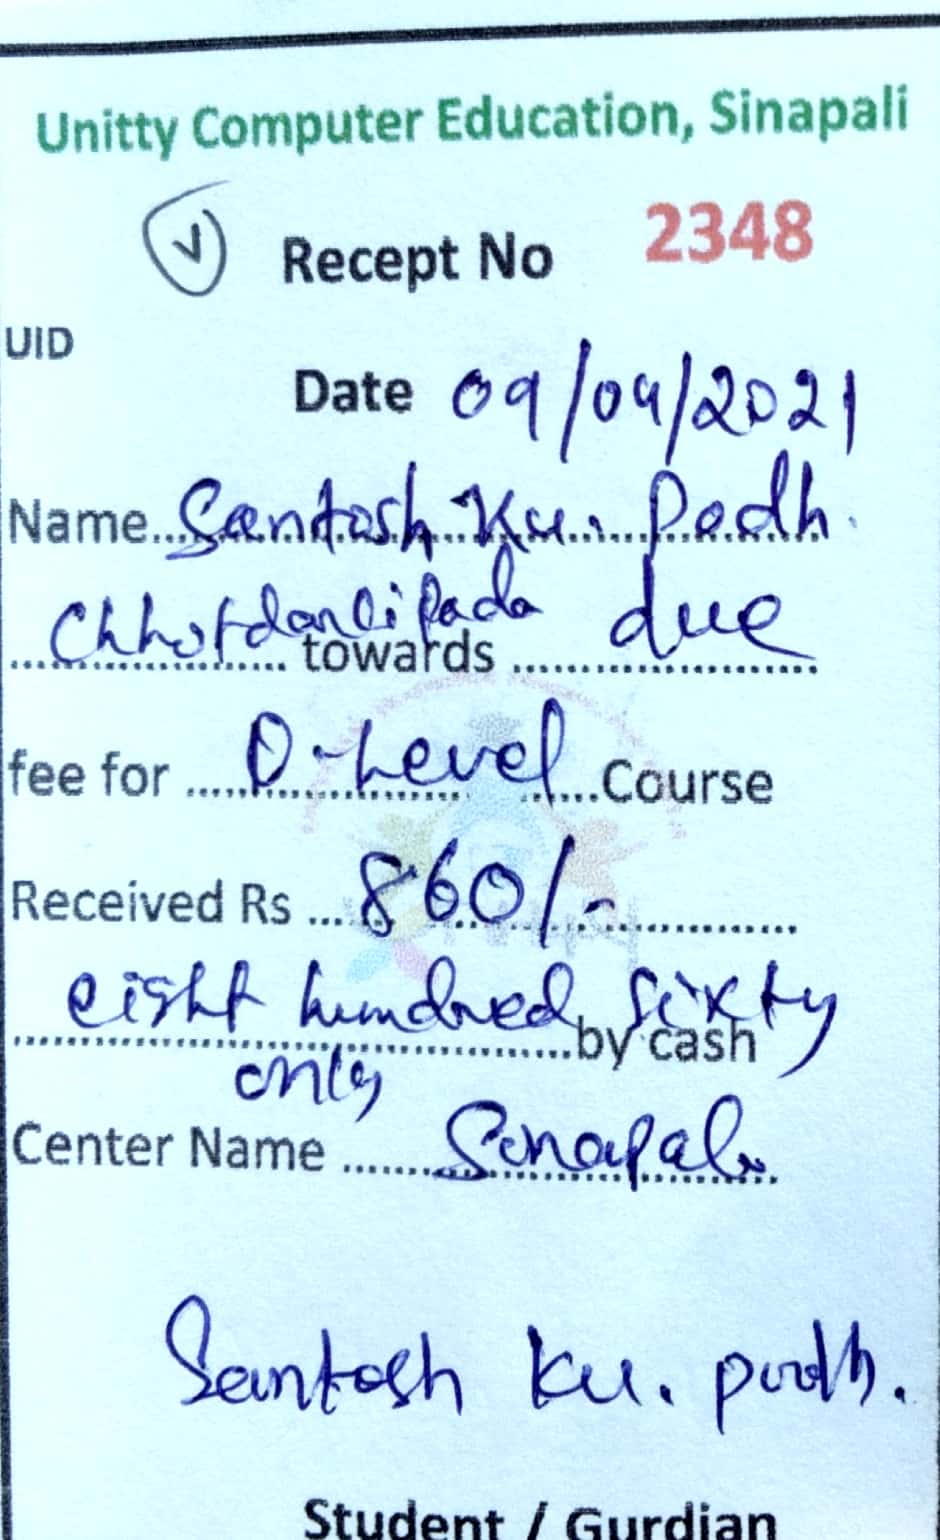 Unitty Computer Education, Sinapali
Recept No 2348
UID
Date 09/04/2021
Name...Santosh Ku. Podh.
Chhotdanlipada towards due
fee for .....O-Level.....Course
Received Rs ...860/-............
eight hundred sixty
by cash
only
Center Name ......Sinapali
Santosh Ku. podh.
Student / Gurdian